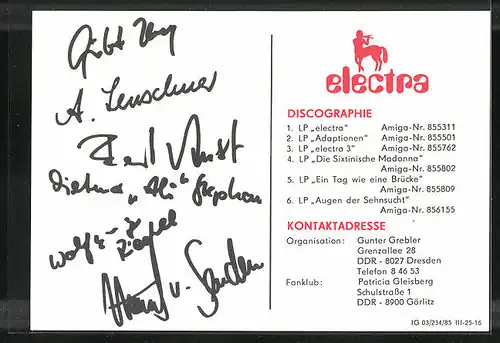 A. Leuschner
Dietmar "Ali" Stephan
Wolf
Riedel
v.
electra
DISCOGRAPHIE
1. LP „electra" Amiga-Nr. 855311
2. LP „Adaptionen" Amiga-Nr. 855501
3. LP „electra 3" Amiga-Nr. 855762
4. LP „Die Sixtinische Madonna"
Amiga-Nr. 855802
5. LP „Ein Tag wie eine Brücke"
Amiga-Nr. 855809
6. LP „Augen der Sehnsucht"
Amiga-Nr. 856155
KONTAKTADRESSE
Organisation: Gunter Grebler
Grenzallee 28
DDR - 8027 Dresden
Telefon 8 46 53
Fanklub: Patricia Gleisberg
Schulstraße 1
DDR - 8900 Görlitz
IG 03/234/85 III-25-16